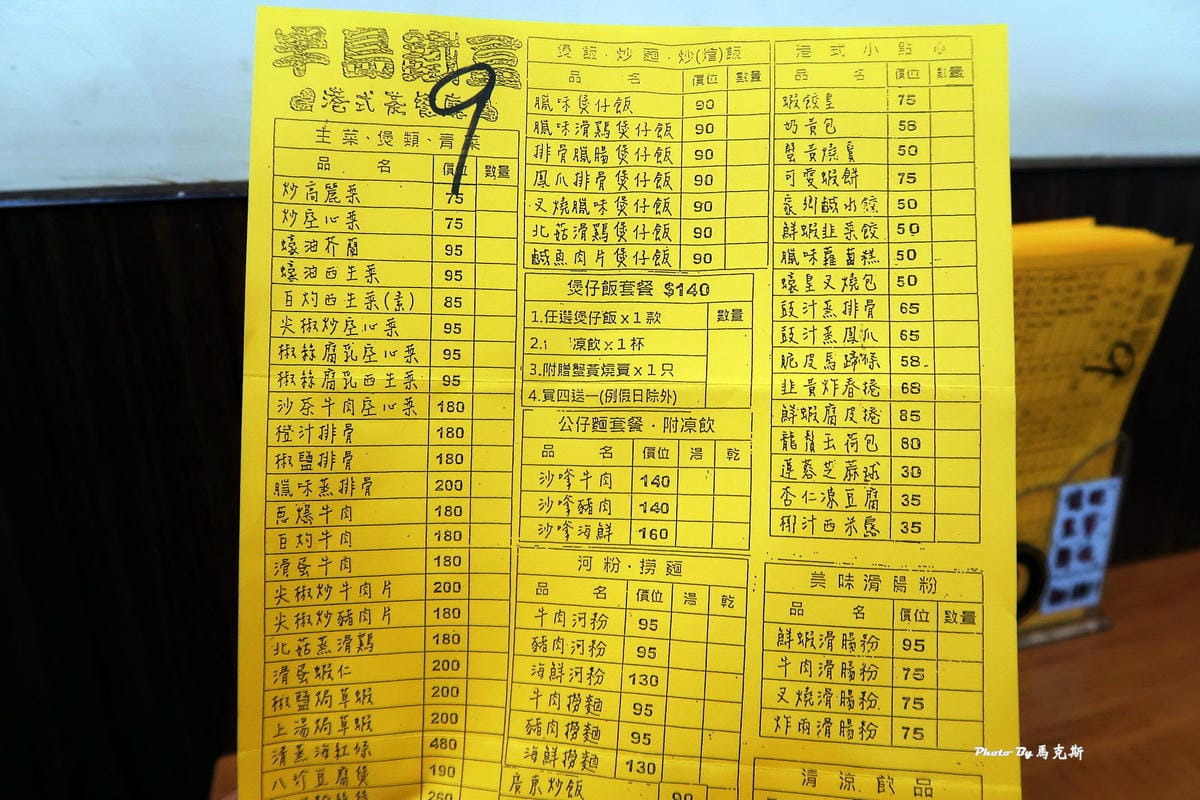 半島耕壹
港式蒸餐廳
9
主菜、煲類、青菜
品 名 價位 數量
炒高麗菜 75
炒空心菜 75
蠔油芥蘭 95
蠔油西生菜 95
百灼西生菜(素) 85
尖椒炒空心菜 95
椒絲腐乳空心菜 95
椒絲腐乳西生菜 95
沙茶牛肉空心菜 180
橙汁排骨 180
椒鹽排骨 180
臘味蒸排骨 200
蔥爆牛肉 180
百灼牛肉 180
滑蛋牛肉 180
尖椒炒牛肉片 200
尖椒炒豬肉片 180
北菇蒸滑鷄 180
滑蛋蝦仁 200
椒鹽焗草蝦 200
上湯焗草蝦 200
清蒸海紅條 480
八珍豆腐煲 190
260
煲飯·炒麵·炒(燴)飯
品 名 價位 數量
臘味煲仔飯 90
臘味滑鷄煲仔飯 90
排骨臘腸煲仔飯 90
鳳爪排骨煲仔飯 90
叉燒臘味煲仔飯 90
北菇滑鷄煲仔飯 90
鹹魚肉片煲仔飯 90
煲仔飯套餐 $140
1.任選煲仔飯x1款 數量
2. 凉飲x1杯
3.附贈蟹黃燒賣x1只
4.買四送一(例假日除外)
公仔麵套餐·附凉飲
品 名 價位 湯 乾
沙嗲牛肉 140
沙嗲豬肉 140
沙嗲海鮮 160
河粉·撈麵
品 名 價位 湯 乾
牛肉河粉 95
豬肉河粉 95
海鮮河粉 130
牛肉撈麵 95
豬肉撈麵 95
海鮮撈麵 130
廣東炒飯 90
港式小點心
品 名 價位 數量
蝦餃皇 75
奶黃包 58
蟹黃燒賣 50
可愛蝦餅 75
家鄉鹹水餃 50
鮮蝦韭菜餃 50
臘味蘿蔔糕 50
蠔皇叉燒包 50
豉汁蒸排骨 65
豉汁蒸鳳爪 65
脆皮馬蹄條 58
韭黃炸春捲 68
鮮蝦腐皮捲 85
龍鬚玉荷包 80
蓮蓉芝蔴球 30
杏仁凍豆腐 35
椰汁西米露 35
美味滑腸粉
品 名 價位 數量
鮮蝦滑腸粉 95
牛肉滑腸粉 75
叉燒滑腸粉 75
炸兩滑腸粉 75
清涼飲品
9
Photo By 馬克斯